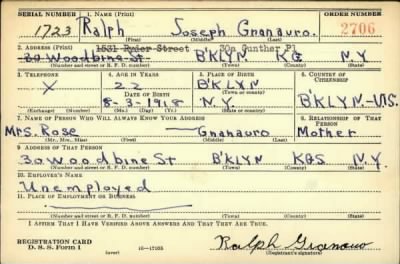 SERIAL NUMBER 1. NAME (Print) ORDER NUMBER
1723 Ralph Joseph Gnanauro. 2706
(First) (Middle) (Last)
2. ADDRESS (Print) 1531 Ryder Street 30a Gunther Pl
30 Woodbine St B'KLYN KG N.Y.
(Number and street or R. F. D. number) (Town) (County) (State)
3. TELEPHONE 4. AGE IN YEARS 5. PLACE OF BIRTH 6. COUNTRY OF CITIZENSHIP
X 22 B'KLYN
DATE OF BIRTH (Town or county)
8-3-1918 N.Y. B'KLYN-U.S.
(Exchange) (Number) (Mo.) (Day) (Yr.) (State or country)
7. NAME OF PERSON WHO WILL ALWAYS KNOW YOUR ADDRESS 8. RELATIONSHIP OF THAT PERSON
Mrs. Rose — Gnanauro Mother
(Mr., Mrs., Miss) (First) (Middle) (Last)
9. ADDRESS OF THAT PERSON
30 Woodbine St B'KLYN KGS N.Y.
(Number and street or R. F. D. number) (Town) (County) (State)
10. EMPLOYER'S NAME
Unemployed
11. PLACE OF EMPLOYMENT OR BUSINESS
(Number and street or R. F. D. number) (Town) (County) (State)
I AFFIRM THAT I HAVE VERIFIED ABOVE ANSWERS AND THAT THEY ARE TRUE.
REGISTRATION CARD
D. S. S. FORM 1 (over) 16—17105 Ralph Gnanauro
(Registrant's signature)